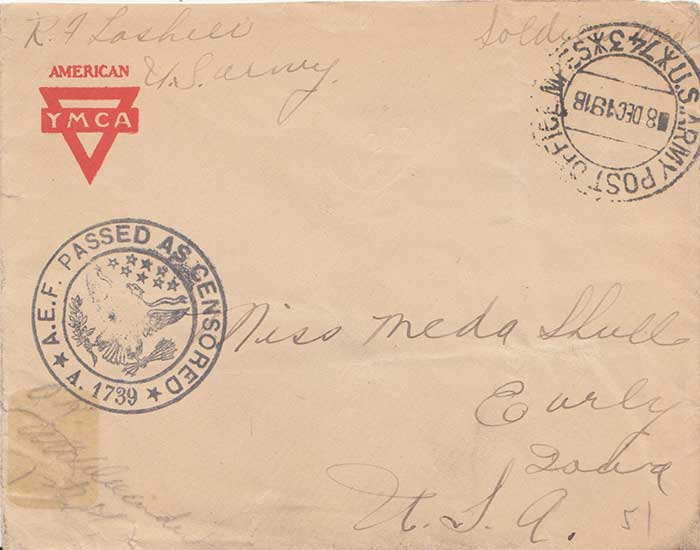 R. F. Lashell
U.S. army.
Soldiers Mail
AMERICAN
YMCA
U.S. ARMY POST OFFICE M.P.E.S. 74 3
8 DEC 1918
A.E.F. PASSED AS CENSORED
A. 1739
Miss Meda Shull
Early
Iowa
U.S.A.
51